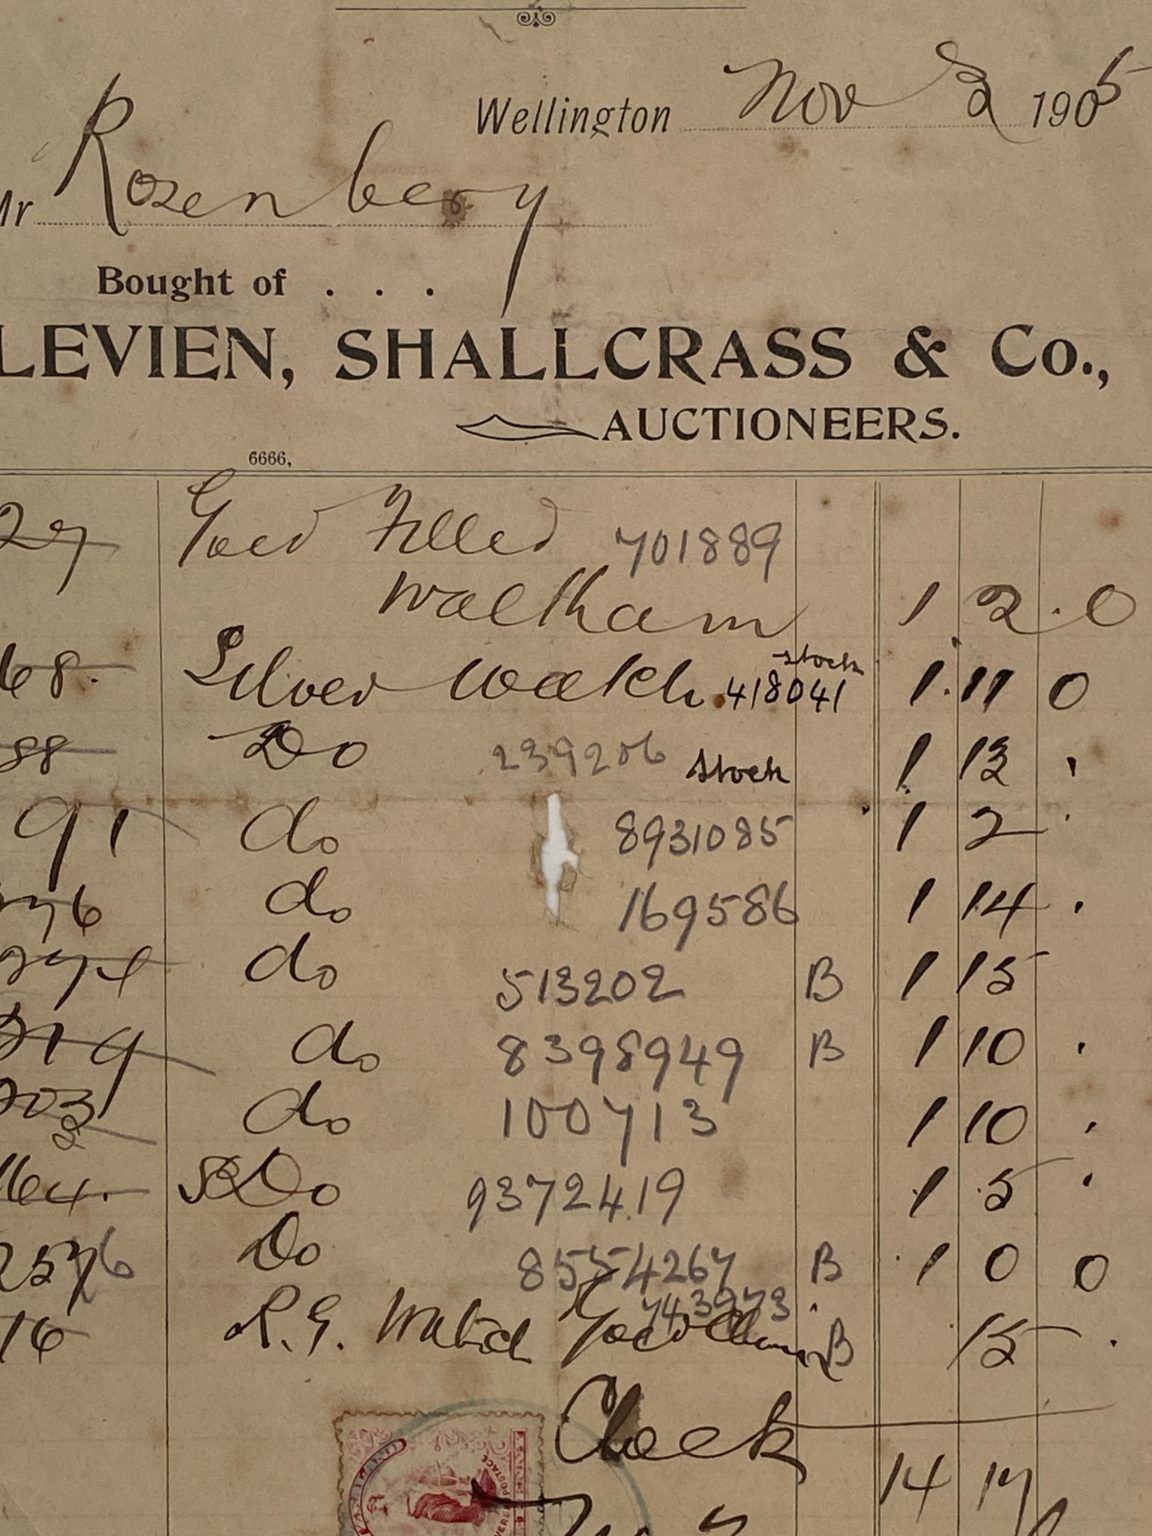 Wellington Nov 2 1905
Mr Rosenbery
Bought of . . .
LEVIEN, SHALLCRASS & Co.,
AUCTIONEERS.
6666,
27 Goed Filled 701889
Waltham 1 2 . 0
68. Silver Watch. 418041 stock 1 . 11 0
88 Do 239206 stock 1 13 .
91 do 8931085 1 2 .
76 do 169586 1 14 .
274 do 513202 B 1 15
319 do 8398949 B 1 10 .
203 do 100713 1 10 .
164. Do 9372419 1 5 .
6 Do 8554267 B 1 0 0
743973
16 R.G. Watch B 15 .
Clock
14 17